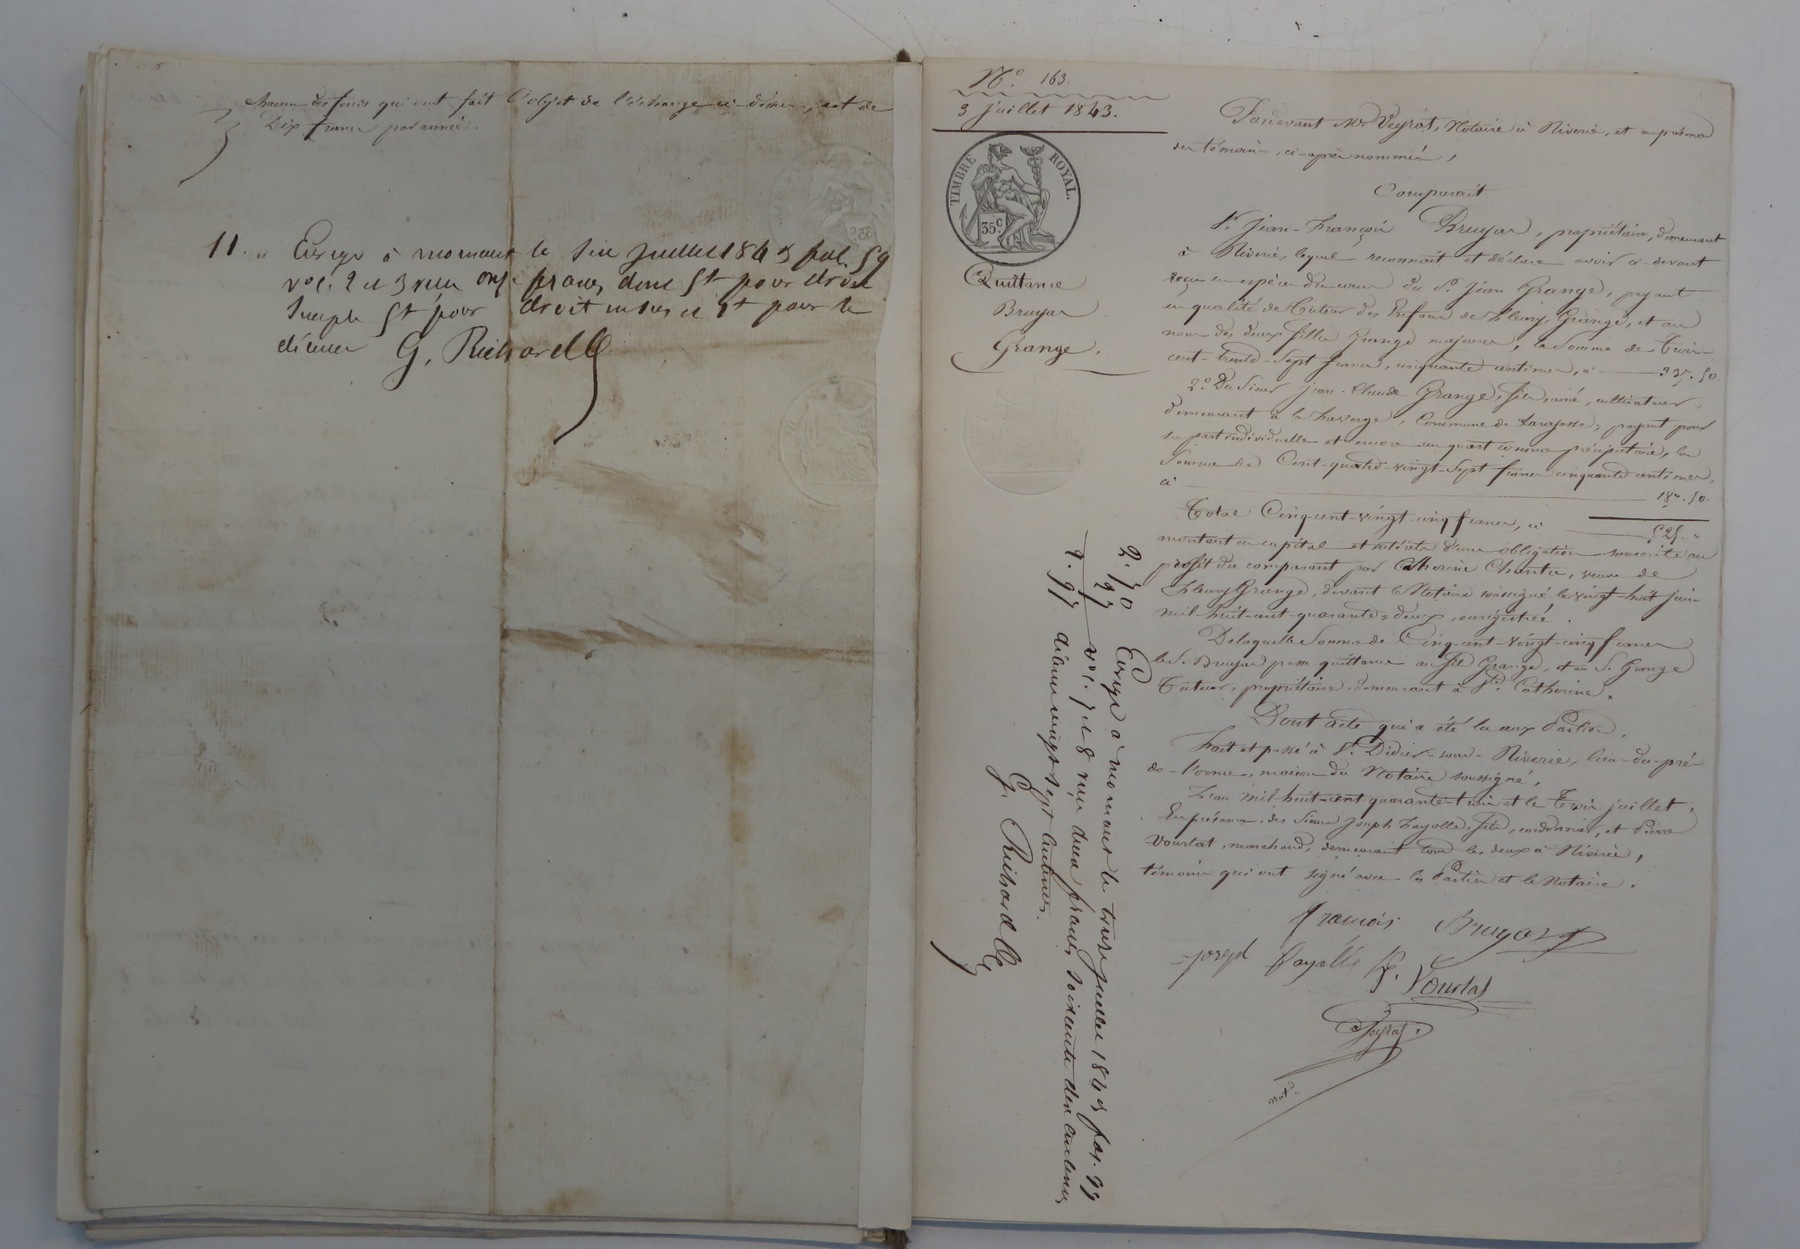 chacun des fonds qui ont fait l'objet de l'échange ci-dessus, est de
Dix francs par année.
11. „ Enregé à mornant le six juillet 1843 fol. 59
vol. 2 et 3 reçu onze francs, dont 5f pour droit
simple 5f pour droit en sus et 1f pour le
dixième G. Richard
N.º 163.
3 juillet 1843.
TIMBRE ROYAL.
35c
Quittance
Bruyas
Grange.
Pardevant Me Veyrat, Notaire à Riverie, et en présence
des témoins, ci-après nommés,
Comparait
Sr. Jean-François Bruyas, propriétaire, demeurant
à Riverie, lequel reconnait et déclare avoir ci-devant
reçu en espèces de cours du Sr. Jean Grange, payant
en qualité de tuteur des Enfans de Fleury Grange, et au
nom des deux filles Grange majeures, la somme de trois-
cent-trente-sept francs, cinquante centimes, ci 337. 50.
2.º Du Sieur Jean-Claude Grange, fils, ainé, cultivateur,
demeurant à la , Commune de Larajasse, payant pour
sa part individuelle et encore un quart comme préciputaire, la
Somme de Cent-quatre-vingt-sept francs cinquante centimes,
ci 187. 50.
Total Cinq-cent-vingt-cinq francs, ci 525. „
montant en capital et intérêts d'une obligation souscrite au
profit du comparant par Catherine , veuve de
Fleury Grange, devant le Notaire soussigné le vingt-huit juin
mil-huit-cent-quarante-deux, enregistrée.
De laquelle somme de Cinq-cent-vingt-cinq francs
le S. Bruyas passe quittance au fils Grange, et au S. Grange
tuteur, propriétaire, demeurant à Ste. Catherine.
Dont acte qui a été lu aux Parties.
Fait et passé à St. Didier-sous-Riverie, lieu-du-pré-
de- , maison du Notaire soussigné,
L'an mil-huit-cent quarante-trois et le trois juillet,
En présence des Sieurs Joseph Fayolle, fils, cordonnier, et Pierre
Vourlat, marchand, demeurant tous les deux à Riverie,
témoins qui ont signé avec les Parties et le Notaire.
françois Bruyas
joseph fayolle P. Vourlat
Veyrat.
not.
2. 70 Enregé à mornant le treize juillet 1843 fol. 99
27 vol. 7 et 8 reçu deux francs soixante dix centimes
2. 97 dixième vingt sept centimes.
G. Richard